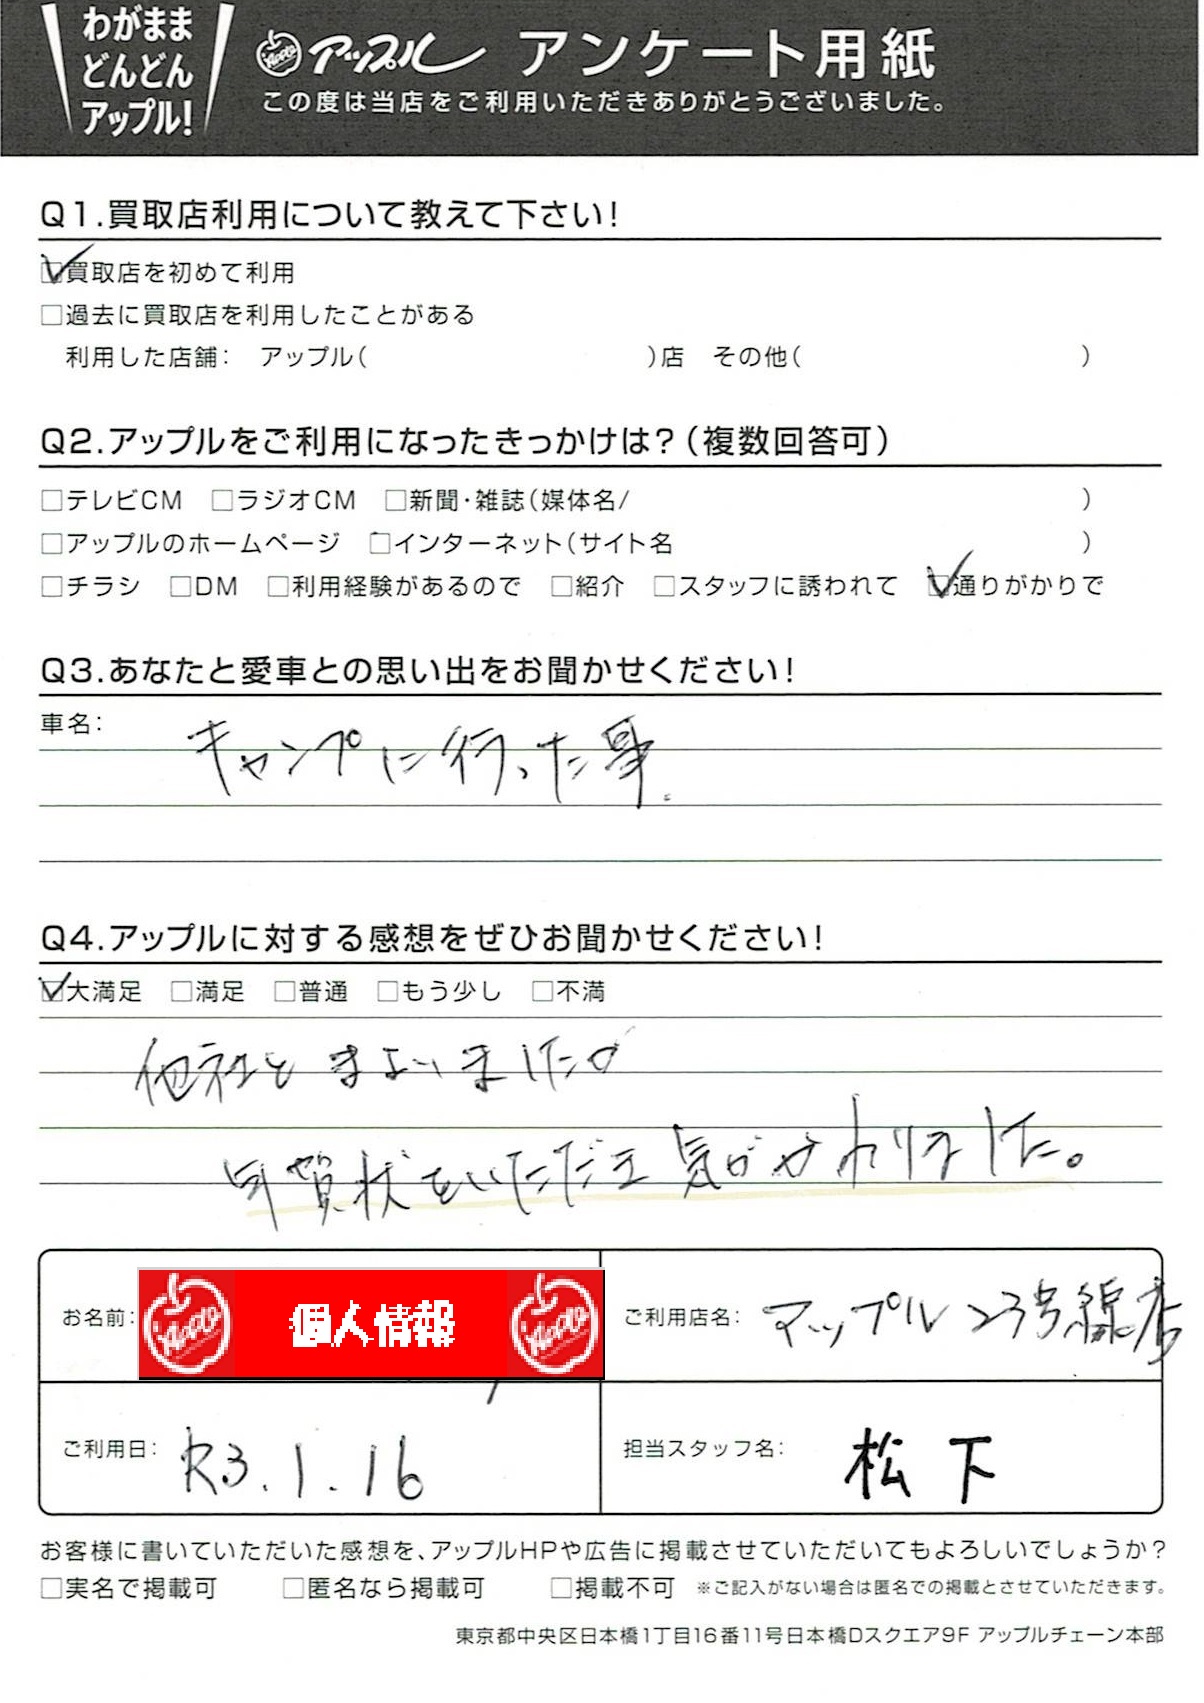 わがまま
どんどん
アップル!
Apple アップル アンケート用紙
この度は当店をご利用いただきありがとうございました。
Q1.買取店利用について教えて下さい!
☑買取店を初めて利用
□過去に買取店を利用したことがある
利用した店舗: アップル( )店 その他( )
Q2.アップルをご利用になったきっかけは?(複数回答可)
□テレビCM □ラジオCM □新聞・雑誌(媒体名/ )
□アップルのホームページ □インターネット(サイト名 )
□チラシ □DM □利用経験があるので □紹介 □スタッフに誘われて ☑通りがかりで
Q3.あなたと愛車との思い出をお聞かせください!
車名:
キャンプに行った事.
Q4.アップルに対する感想をぜひお聞かせください!
☑大満足 □満足 □普通 □もう少し □不満
他社とまよいましたが
年賀状をいただき気がかわりました。
お名前: Apple 個人情報 Apple
ご利用店名: アップル23号線店
ご利用日: R3.1.16
担当スタッフ名: 松下
お客様に書いていただいた感想を、アップルHPや広告に掲載させていただいてもよろしいでしょうか?
□実名で掲載可 □匿名なら掲載可 □掲載不可 ※ご記入がない場合は匿名での掲載とさせていただきます。
東京都中央区日本橋1丁目16番11号日本橋Dスクエア9F アップルチェーン本部